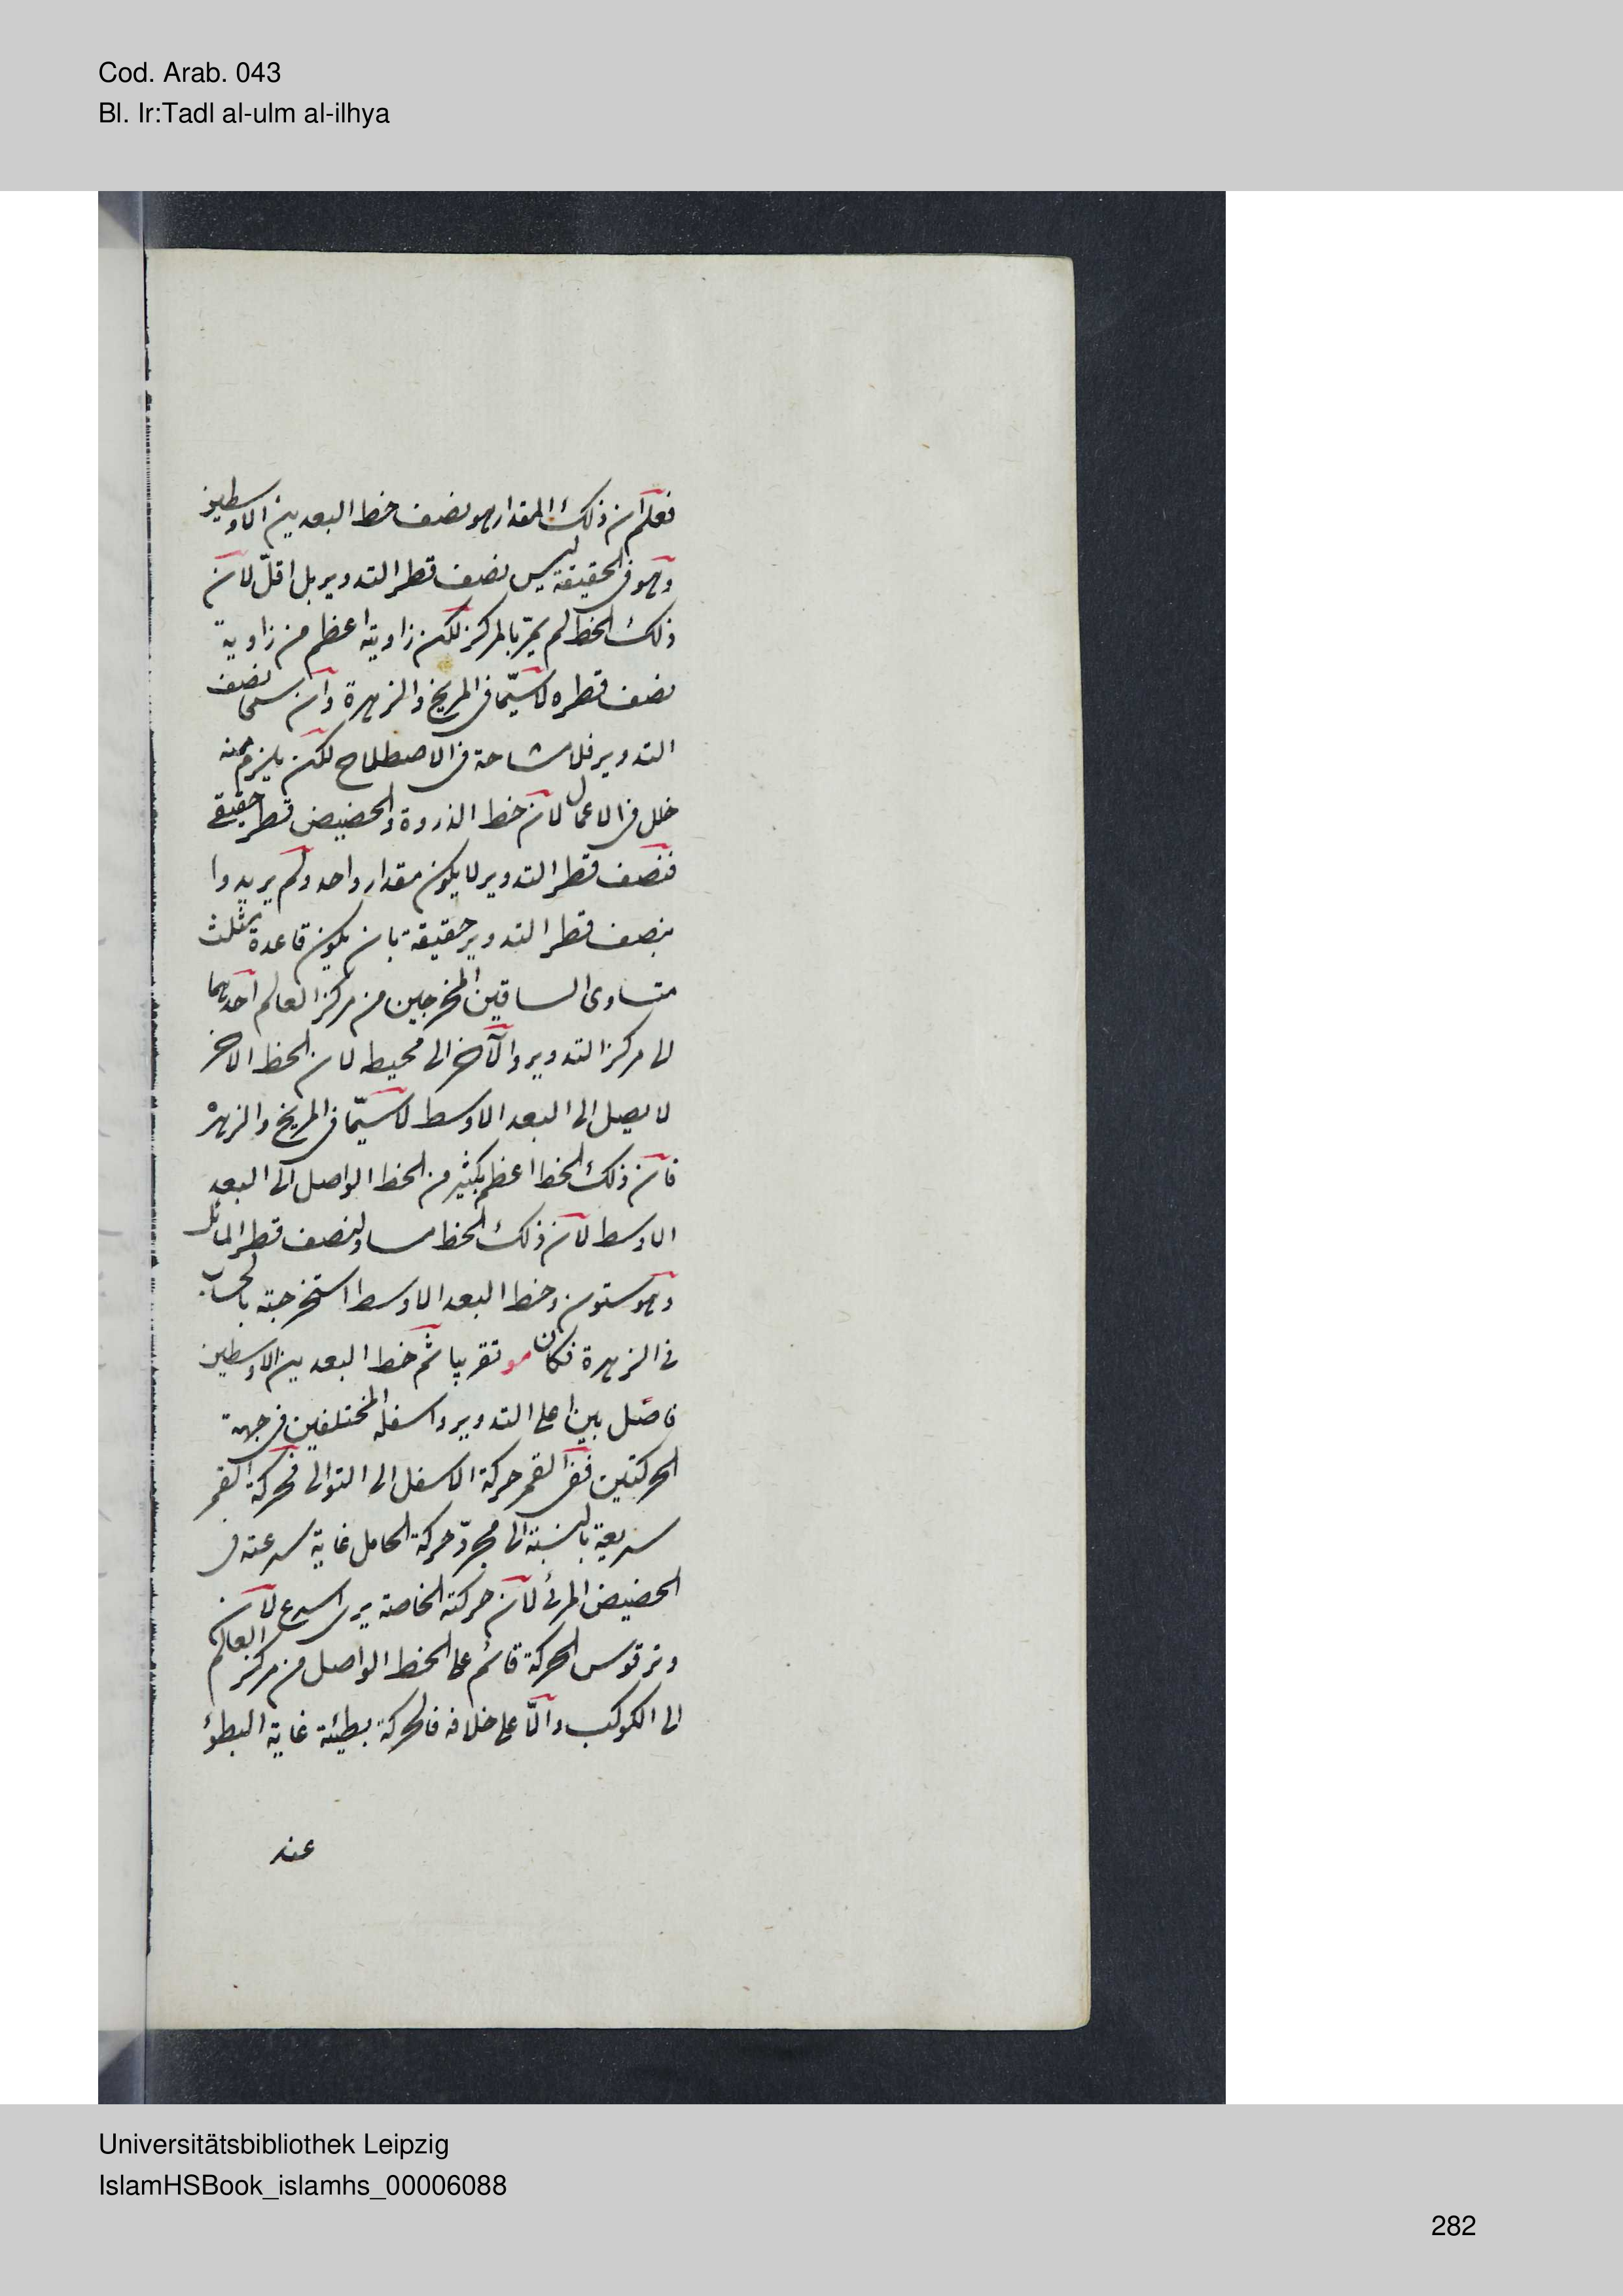 Cod. Arab. 043
Bl. Ir:Tadl al-ulm al-ilhya
فعلم أن ذلك المقدار هو نصف خط البعدين الاوسطين
وهو فى الحقيقة ليس نصف قطر التدوير بل اقلّ لان
ذلك الخط لم يمرّ بالمركز لكن زاويته اعظم من زاوية
نصف قطره لاسيّما فى المريخ والزهرة وان سمى نصف
التدوير فلا مشاحة فى الاصطلاح لكن يلزم منه
خلل فى الاعمال لان خط الذروة والحضيض قطر حقيقى
فنصف قطر التدوير لا يكون مقدار واحد ولم يريدوا
بنصف قطر التدوير حقيقة بان يكون قاعدة مثلث
متساوى الساقين المخرجين من مركز العالم احدهما
الى مركز التدوير والآخر الى محيطه لان الخط الاخر
لا يصل الى البعد الاوسط لاسيّما فى المريخ والزهرة
فان ذلك الخط اعظم بكثير من الخط الواصل الى البعد
الاوسط لان ذلك الخط مساو لنصف قطر المائل
وهو ستون وخط البعد الاوسط استخرجته بالحساب
فى الزهرة فكان مو تقريبا ثم خط البعدين الاوسطين
فاصل بين اعلى التدوير واسفله المختلفين فى جهة
الحركتين ففى القمر حركة الاسفل الى التوالى فحركة القمر
سريعة بالنسبة الى مجرّد حركة الحامل غاية سرعته فى
الحضيض المرئى لان حركته الخاصة يرى اسرع لان
وتر قوس الحركة قائم على الخط الواصل من مركز العالم
الى الكوكب وامّا على خلافه فالحركة بطيئة غاية البطؤ
عند
Universitätsbibliothek Leipzig
IslamHSBook_islamhs_00006088
282